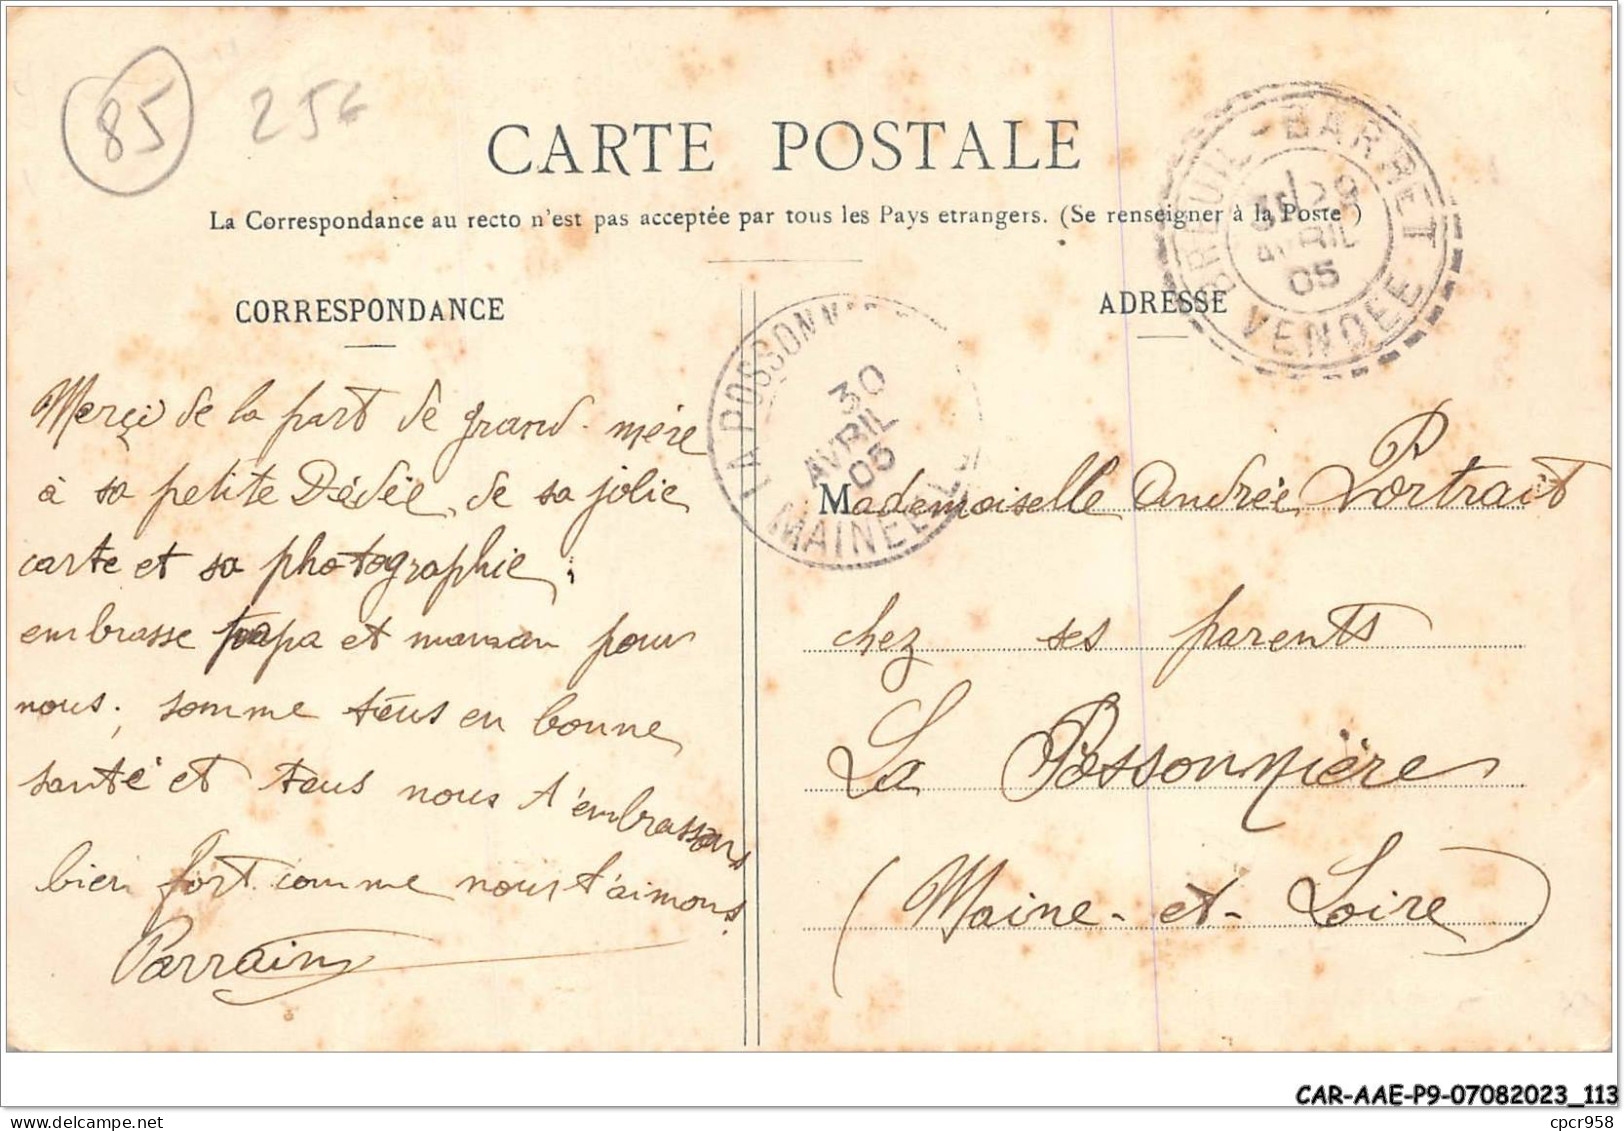 85 256
CARTE POSTALE
La Correspondance au recto n'est pas acceptée par tous les Pays etrangers. (Se renseigner à la Poste)
BREUIL-BARRET
29
AVRIL
05
VENDEE
CORRESPONDANCE
ADRESSE
LA POSSONN
30
AVRIL
05
MAINE
Merçi de la part de grand-mère
à sa petite Dédée, de sa jolie
carte et sa photographie,
embrasse papa et maman pour
nous; somme tous en bonne
santé et tous nous t'embrassons
bien fort comme nous t'aimons.
Parrain
Mademoiselle Andrée Portrait
chez ses parents
La Possonnière
(Maine-et-Loire)
CAR-AAE-P9-07082023_113
cpcr958